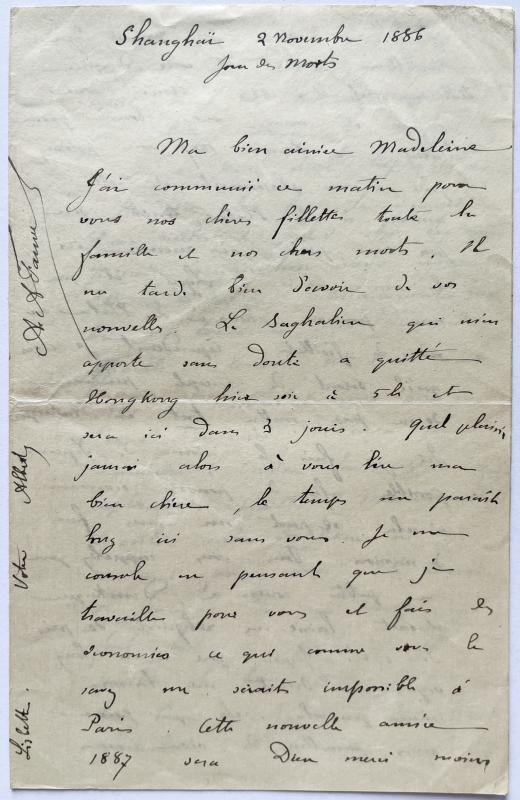 Shanghaï 2 novembre 1886
Jour des Morts
Ma bien aimée Madeleine
J'ai communié ce matin pour
vous nos chères fillettes toute la
famille et nos chers morts. Il
me tarde bien d'avoir de vos
nouvelles. Le Saghalien qui m'en
apporte sans doute a quitté
Hongkong hier soir à 5h et
sera ici dans 3 jours. Quel plaisir
j'aurai alors à vous lire ma
bien chère, le temps me paraît
long ici sans vous. Je me
console en pensant que je
travaille pour vous et fais des
économies ce qui comme vous le
savez me serait impossible à
Paris. Cette nouvelle année
1887 sera Dieu merci moins
Lisbeth. Votre